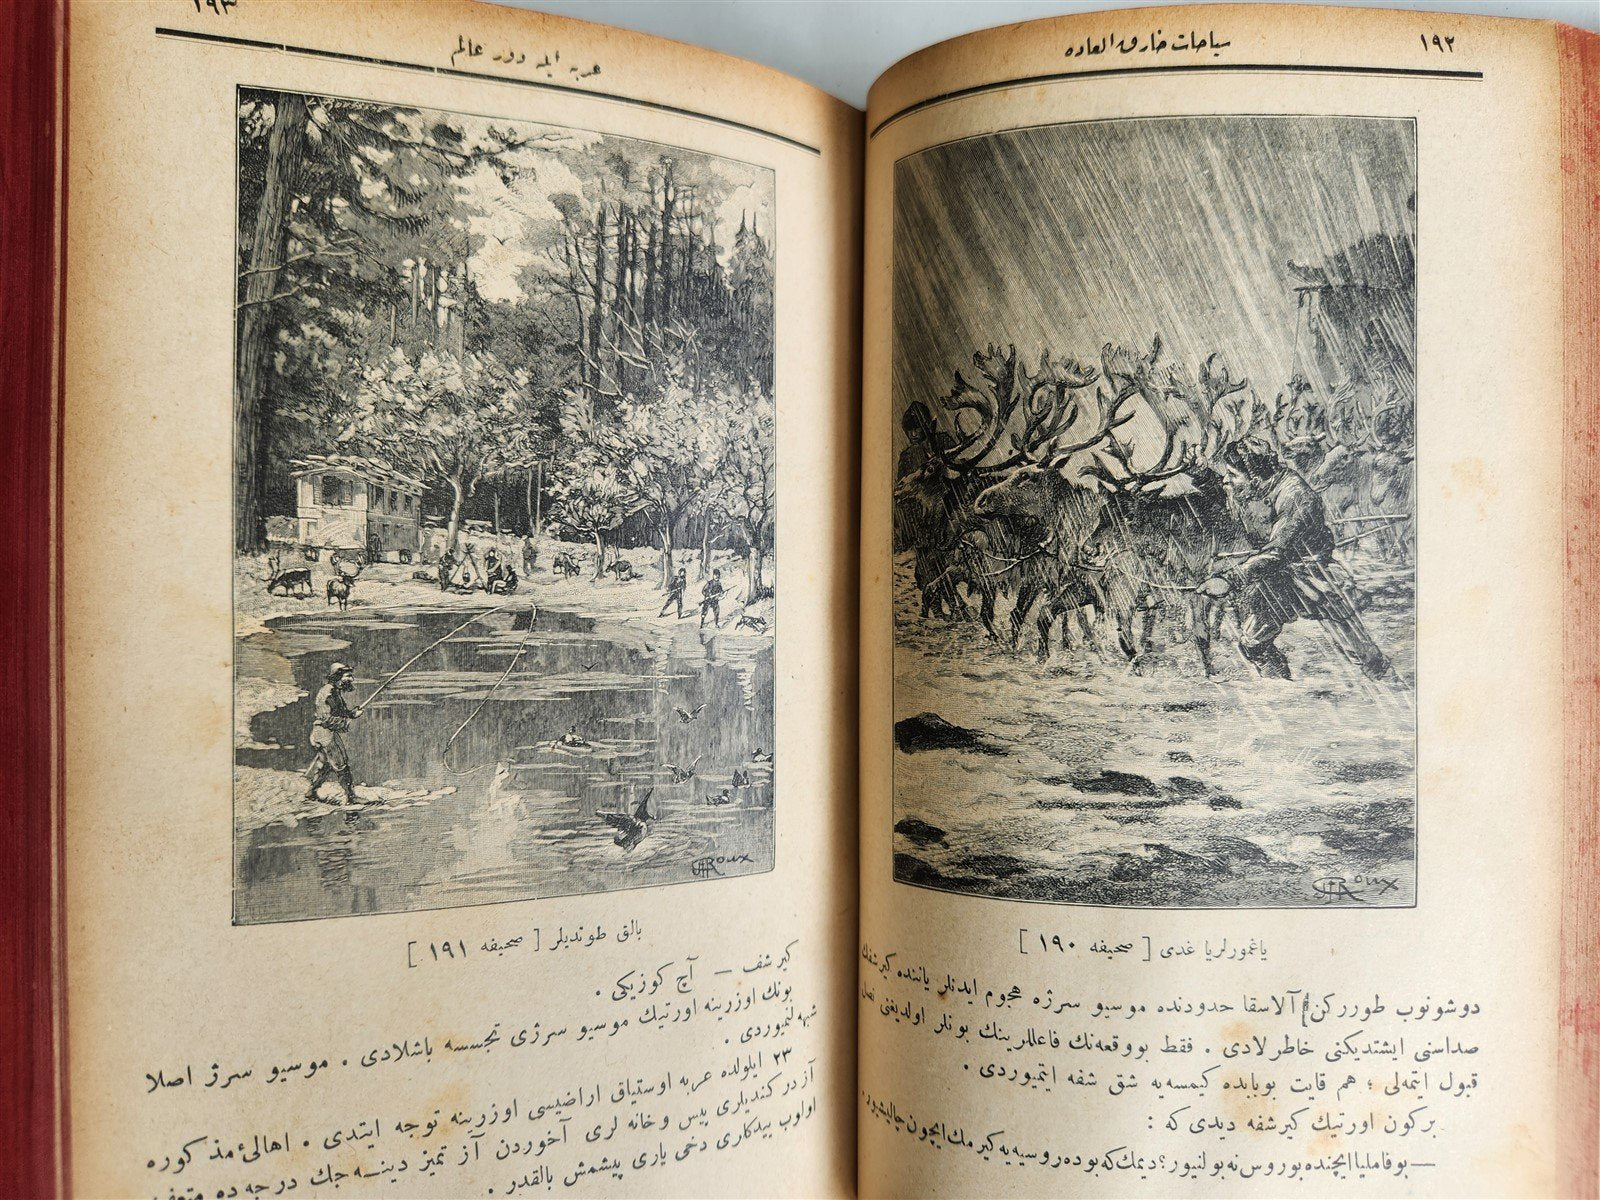 ١٩٢
سیاحات خارق العاده
Roux
یاغمورلر یاغدی [ صحیفه ١٩٠ ]
دوشونوب طوررکن آلاسقا حدودنده موسیو سرژه هجوم ایدنلر یاننده کیرشفك
صداسنی ایشتدیکنی خاطرلادی . فقط بووقعه‌نك فاعللرینك بونلر اولدیغنی نصل
قبول ایتمه‌لی ؛ هم قایت بوبابده کیمسه‌یه شق شفه ایتمیوردی .
برکون اورتیك کیرشفه دیدی که :
— بوفامیلیا ایچنده بوروس نه بولنیور؟ دیمك که بوده روسیه‌یه کیرمك ایچون چالیشیور .
١٩٣
عربه ایله دور عالم
Roux
بالق طوتدیلر [ صحیفه ١٩١ ]
کیرشف — آچ کوزیکی .
بونك اوزرینه اورتیك موسیو سرژی تجسسه باشلادی . موسیو سرژ اصلا
شبهه لنمیوردی .
٢٣ ایلولده عربه اوستیاق اراضیسی اوزرینه توجه ایتدی . اهالئ مذکوره
آز در کندیلری پیس و خانه لری آخوردن آز تمیز دینه‌جك درجه‌ده
اولوب بیدکلری دخی یاری پیشمش بالقدر .